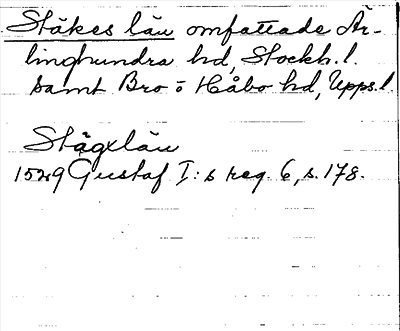 Stäkes län omfattade Är-
linghundra hd, Stockh. l.
samt Bro o Håbo hd, Upps. l.
Stägxlän
1529 Gustaf I:s reg. 6, s. 178.